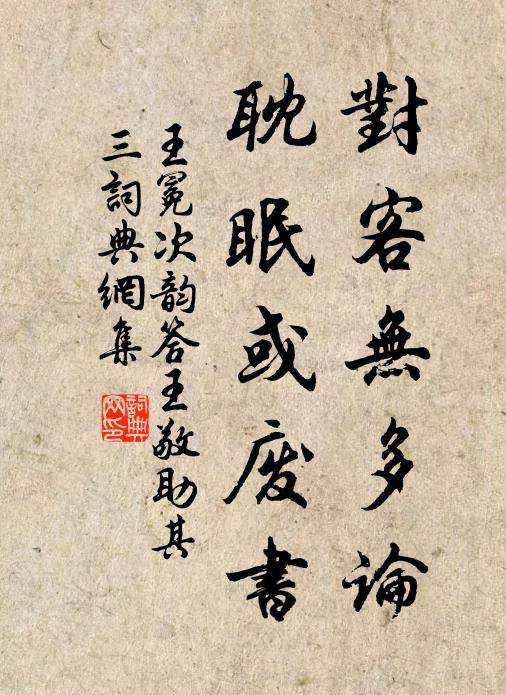 對客無多論
耽眠或废書
王冕次韵答王敬助其
三詞典網集
詞典网印